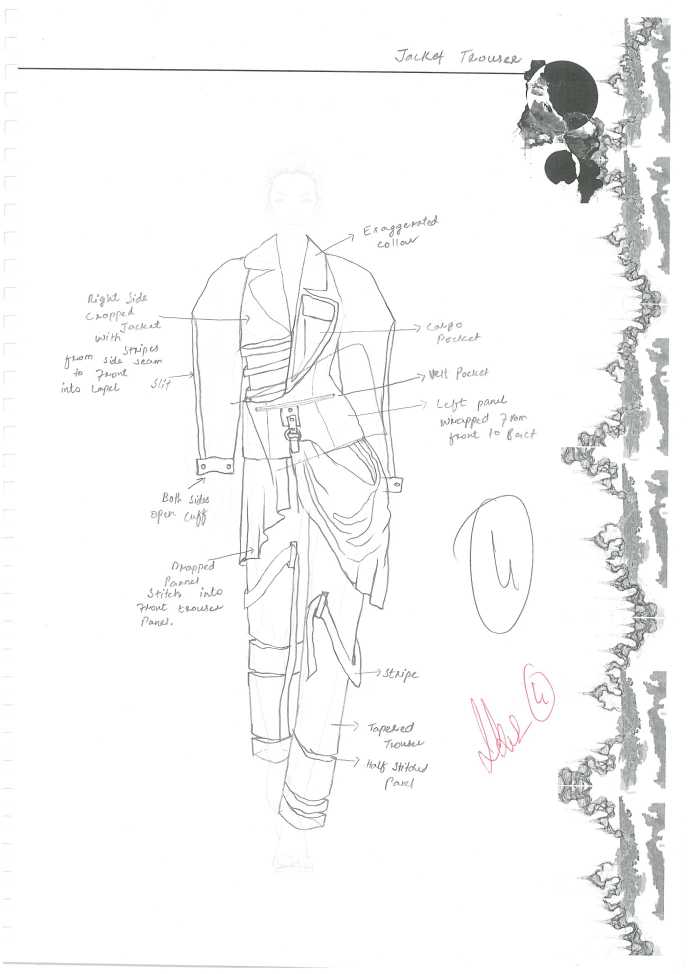 Jacket Trouser
Exaggerated
collar
Right Side
Cropped
Jacket
with
Stripes
from Side Seam
to Front
into Lapel
Slit
Cargo
Pocket
Welt Pocket
Left panel
Wrapped from
front to Back
Both sides
open cuff
Drapped
Pannel
Stitch into
Front trouser
Panel.
Stripe
Tapered
Trouser
Half Stitched
Panel